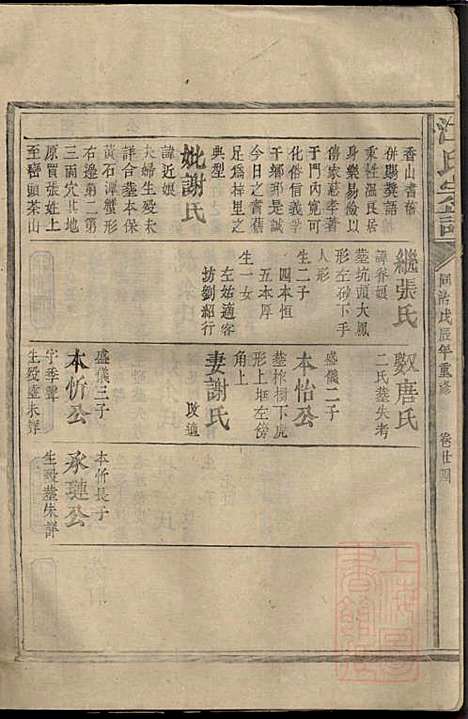 氏宗譜
同治戊辰年重修
卷廿四
香山耆舊
併賜奬語
秉性溫良居
身樂易儉以
傳家慈孝著
于門內寬可
化俗信義孚
于鄉鄙是誠
今日之耆舊
足爲梓里之
典型
妣謝氏
諱近娘
夫婦生歿未
詳合墓本保
黃石潭蟹形
右邊第二第
三兩穴其地
原買張姓上
至窑頭茶山
繼張氏
諱春娘
墓坑頭大鳳
形左砂下手
人形
生二子
四本恒
五本厚
生一女
左始適客
坊劉紹行
二氏墓失考
本怡公
盛儀二子
墓柞樹下虎
形上堪左傍
角上
妻謝氏
改適
本忻公
盛儀三子
字季聲
生歿墓未詳
承璉公
本忻長子
生歿墓失詳
上海圖書館藏